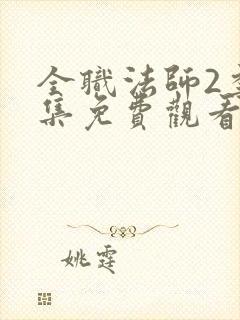 全職法師2
集免費觀看
姚霆